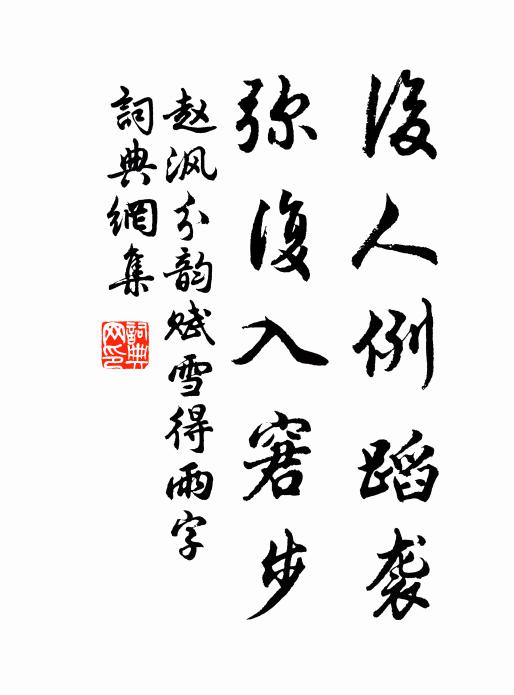 後人例蹈袭
弥復入窘步
赵沨分韵赋雪得雨字
詞典網集
詞典网印